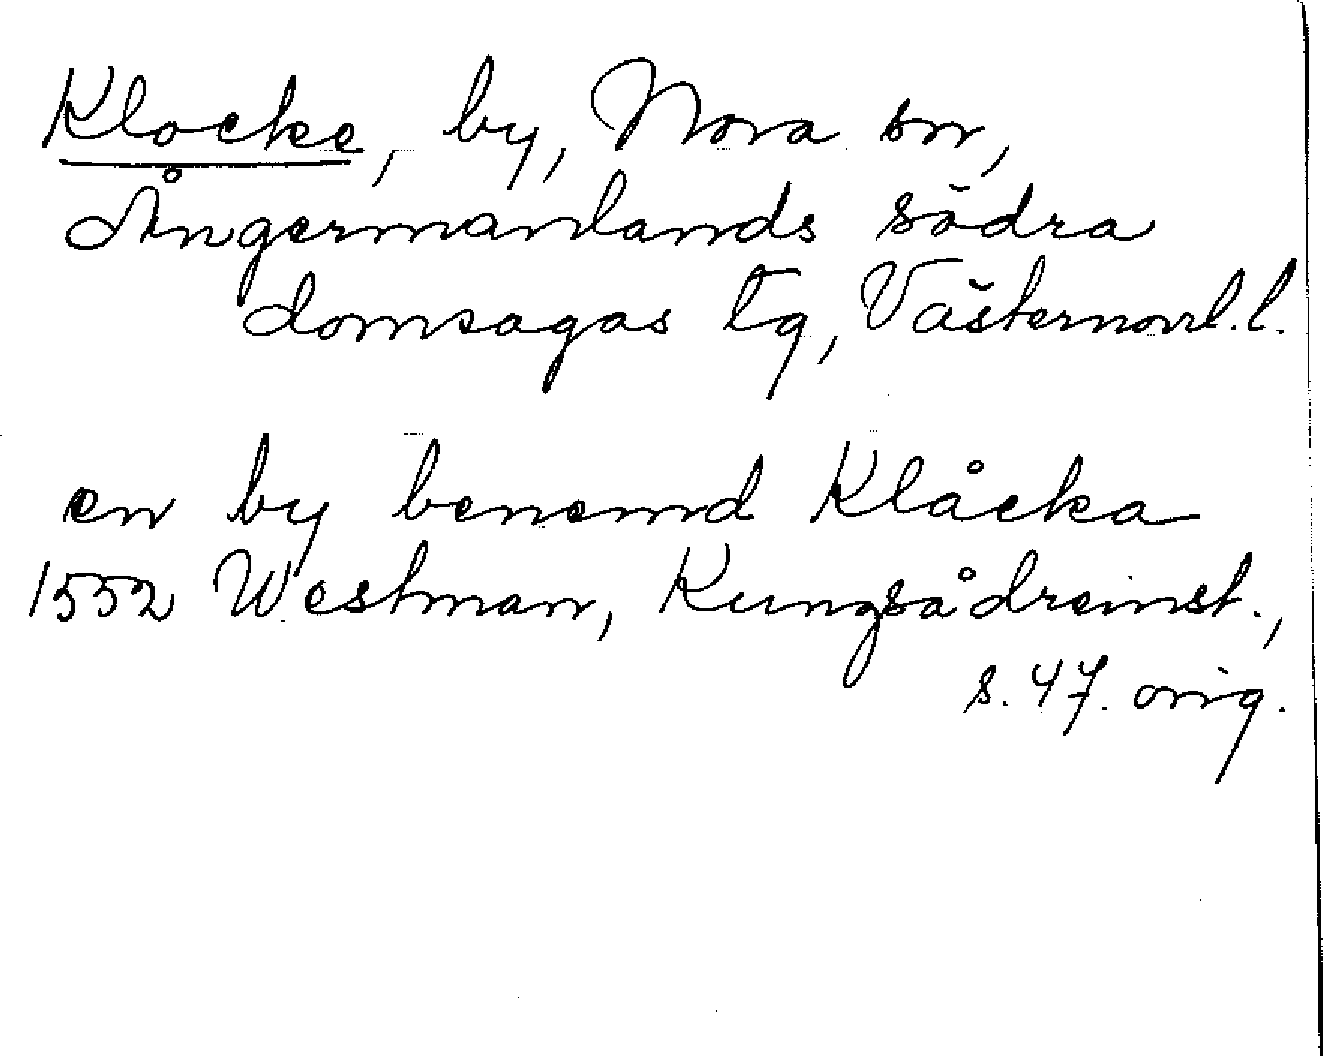 Klocke, by, Nora sn,
Ångermanlands södra
domsagas tg, Västernorrl. l.
en by benemd Klåcka
1552 Westman, Kungsådreinst.,
s. 47. orig.